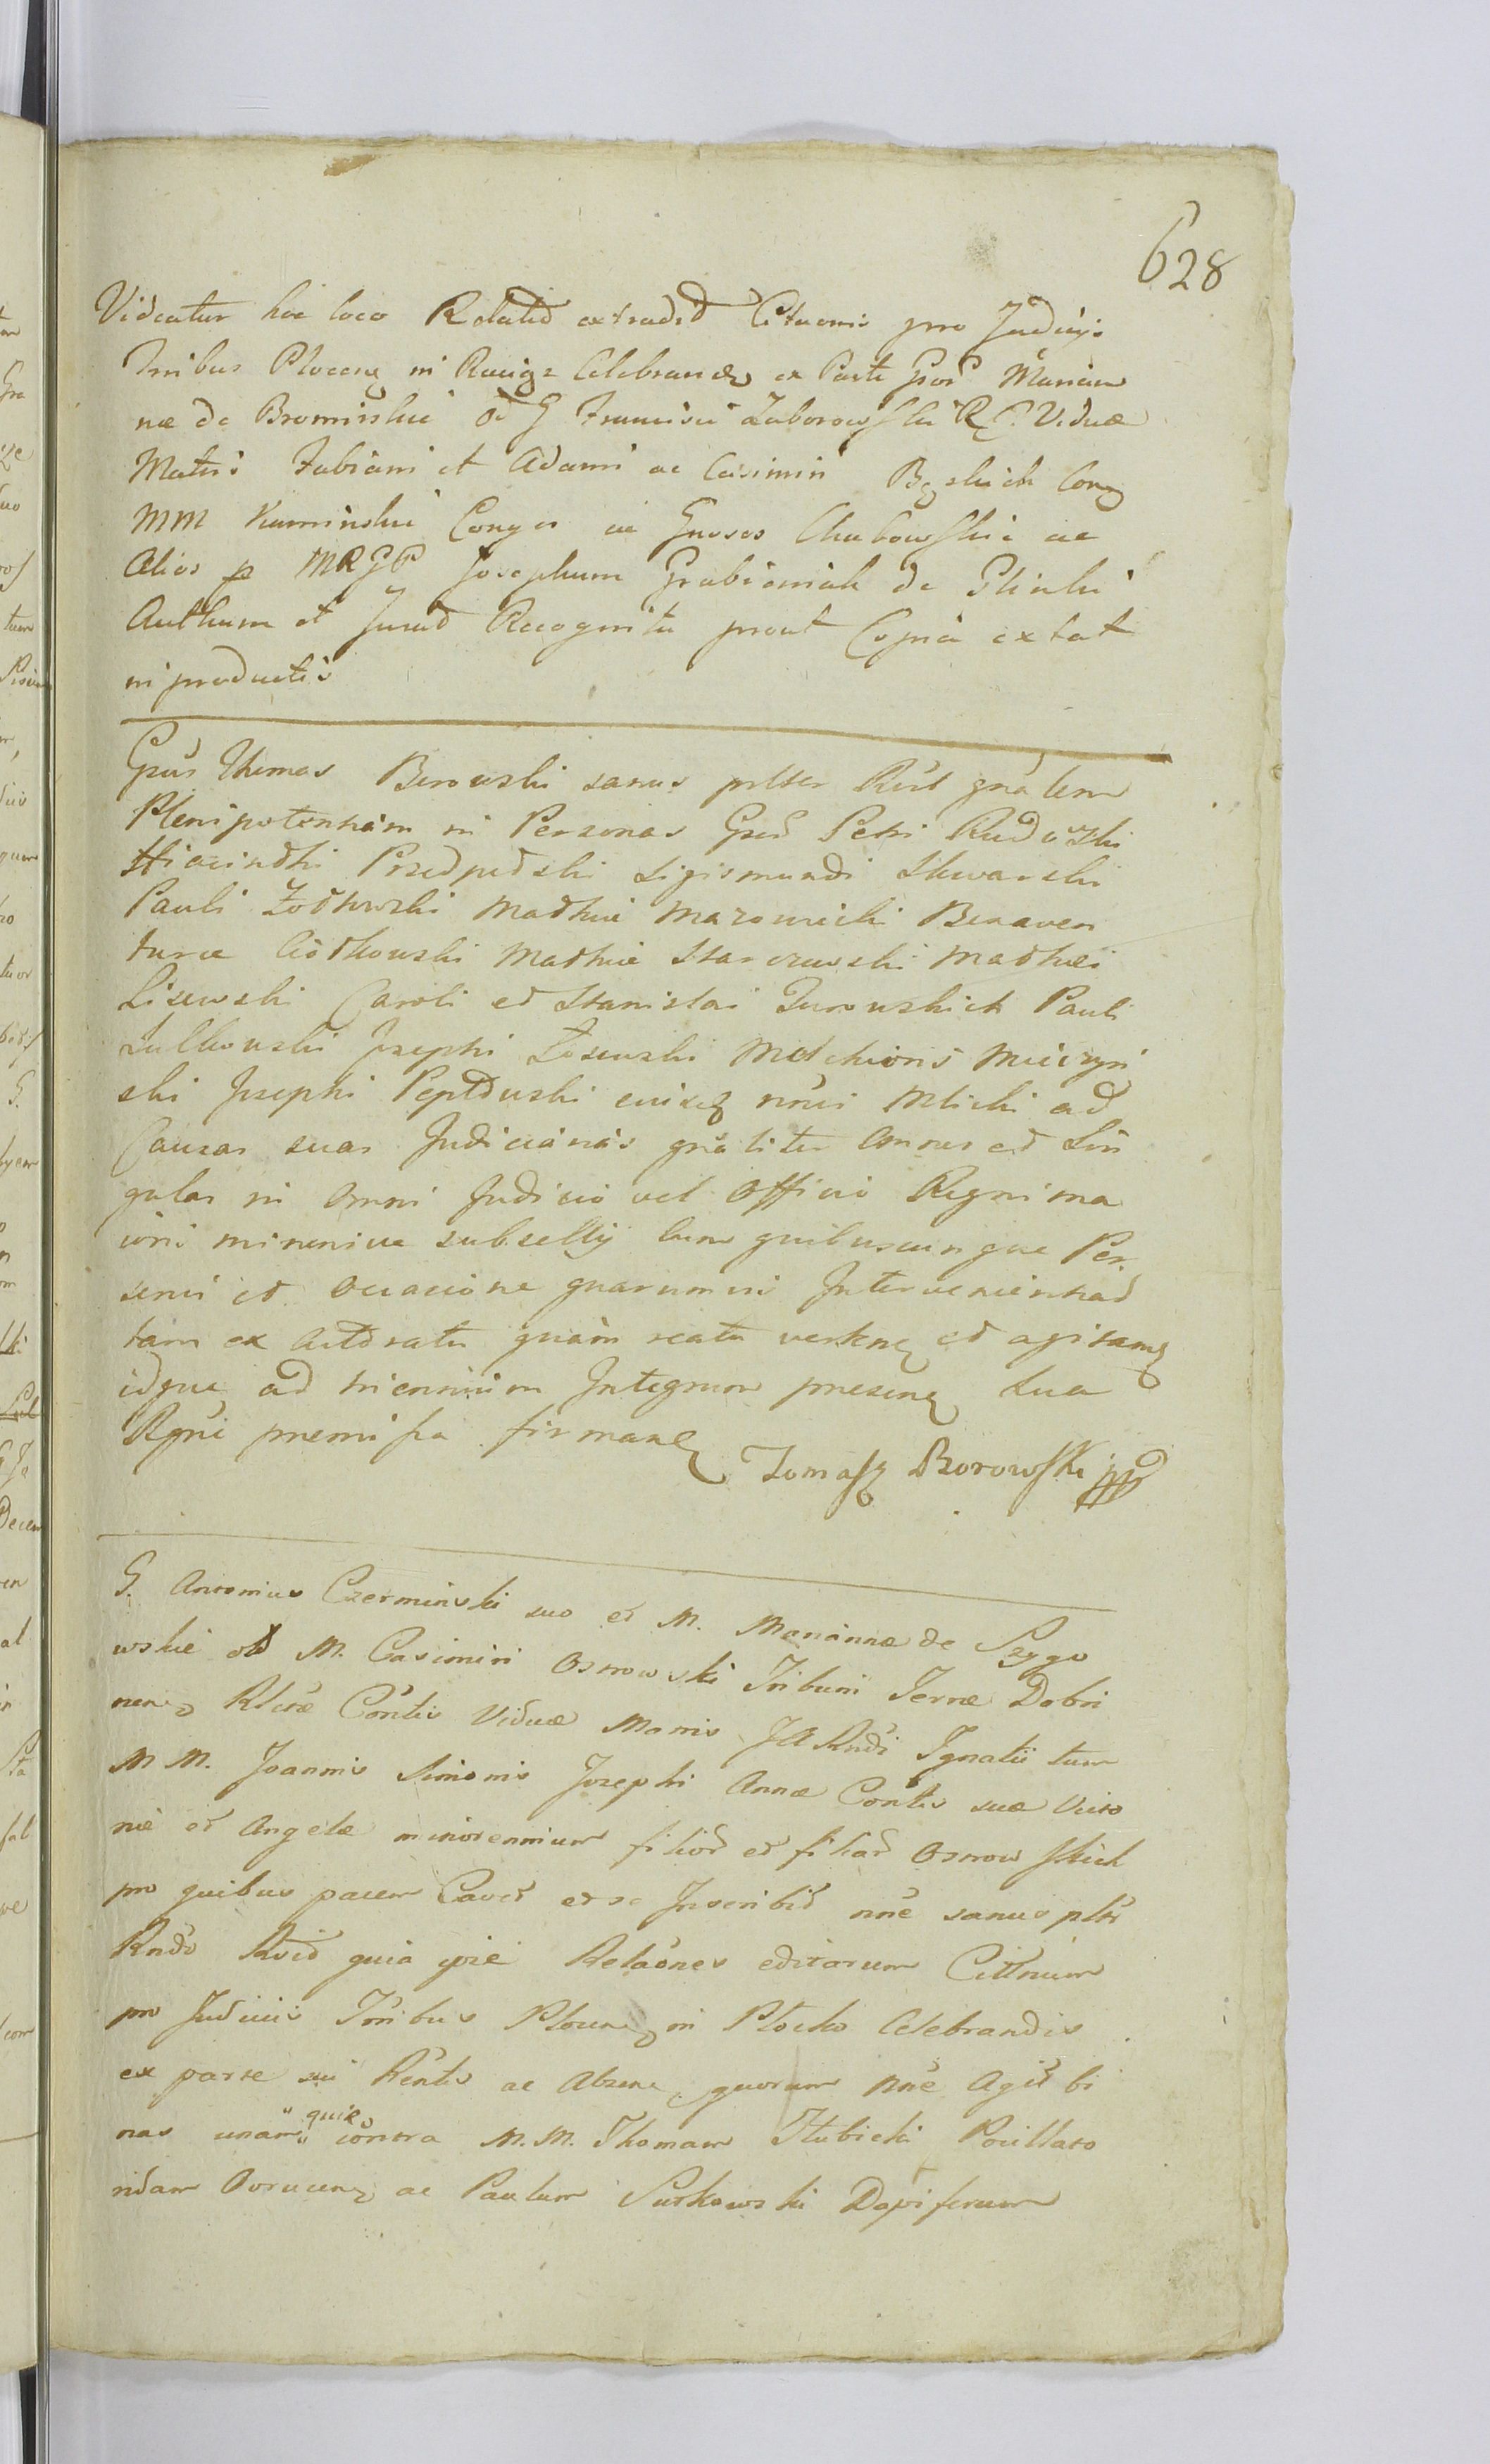 628
Videatur hoc loco Relatio extradit Citationis pro Judicijs
Tribus Plocens in Raciąż Celebrand ex Parte Gsor Marian
næ de Brominskie Ol G Francisci Zaborowski R C. Viduæ
Matris Fabiani et Adami ac Casimiri Con
MM Kaminskie Conges ac Gnosos Chabowskie ac
Alios p MRGP Josephum Grabieniak de
Authum et Jurad Recognita prout Copia extat
in productis
Gsus Thomas Borowski sanus pltter Rćt gnalem
Plenipotentiam in Personas Gsod Petri Rudowski
Hiacindhi Przedpedski Sigismundi Skwarski
Pauli Zodkowski Mathei Mazowieski Bonaven
turæ Ciodkowski Mathie Starczewski Mathei
Lisewski Caroli et Stanislai Turowskich Pauli
Sulkowski Josephi Losewski Melchioris Mieczyn
ski Josephi Pepłowski nnei Mlicki ad
Causas suas Judiciarias gnaliter omnes et Sin
gulas in omni Judicio vel Officio Regni ma
ioris minorive subsellij cum quibuscunque Per
sonis et occasione quarumvis Intervenientiad
tam ex Actoratu quam reatu verten et agitan
idque ad triennium Integrum presen sua
Rgni premissa firman Tomasz Borowski
G. Antonius Czerminski suo et M. Mariannæ de Szygo
wskie ol M. Casimiri Osnowski Tribuni Terræ Dobri
nen Rlictæ Contis Viduæ Matris JARndi Ignatii tum
M M. Joannis Simonis Josephi Annæ Contis suæ Victo
riæ et Angelæ minorennium filiod et filiad Osnowskich
pro quibus pacem Cavet et se Inscribit nne sanus pltr
Rndo Rcid quia ipse Relaones editarum Cittnum
pro Judiciis Trribus Plocen in Płocko Celebrandis
ex parte sui Rentis ac Absen quorum nne Agit bi
nas unam quic contra M. M. Thomam Hubicki Pocillato
ridam Ovrucen ac Paulum Sutkowski Dapiferum